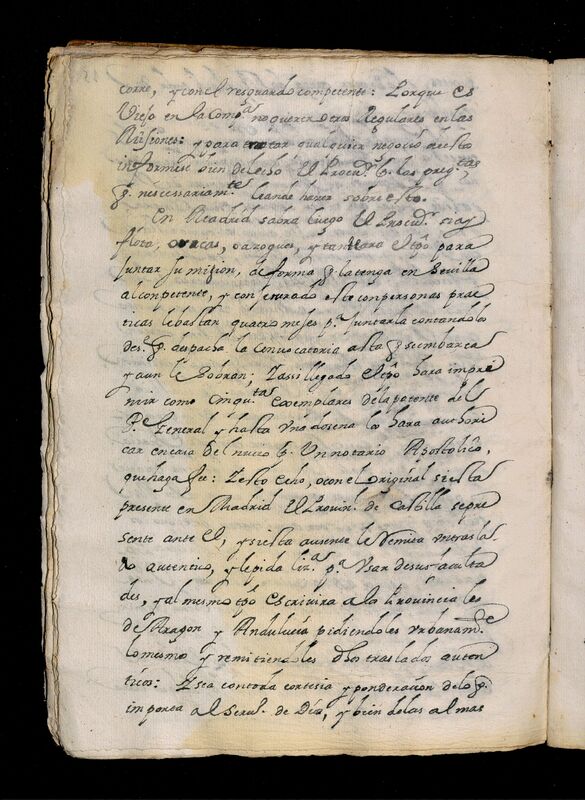 corre, y con el resguardo competente: Porque es
Viejo en la Compª no querer otros Regulares en las
Missiones: y para tratar qualquier negocio de esto
informese bien de lecho el Procurr. pr. las pregtas
q. nescessariamte leande hacer sobre esto.
En Madrid sabra luego el Procur. si ay
flota, o vacas, o azogues, y tanteara el tpõ para
Juntar su mision, de forma q. la tenga en Sevilla
al competente, y con seruado este con personas prac
ticas le bastan quatro meses pª Juntarla contando lo
des. q. despacha la Convocatoria asta q. se embarca
y aun le sobran; Iassi llegado el tpõ hara impre
mir como cinqta exemplares de la patente del
Pe General y hasta vna dosena los hara authori
car encara del nuevo pr. Un notario Apostolico,
que haga fee: I esto echo, o con el original si esta
presente en Madrid el Provinl. de Castilla sepre
sente ante el, y si esta ausente le remita vn trasla
do autentico, y le pida liza pª Usar de sus faculta
des, y al mesmo tpõ escrivira a los Provinciales
de Aragon y Andalucia pidiendoles vrbanamte
lo mesmo y remitiendoles dhos traslados auten
ticos: I sea con toda cortesia y ponderacion de lo q.
importa al Servl. de Dios, y bien de las almas